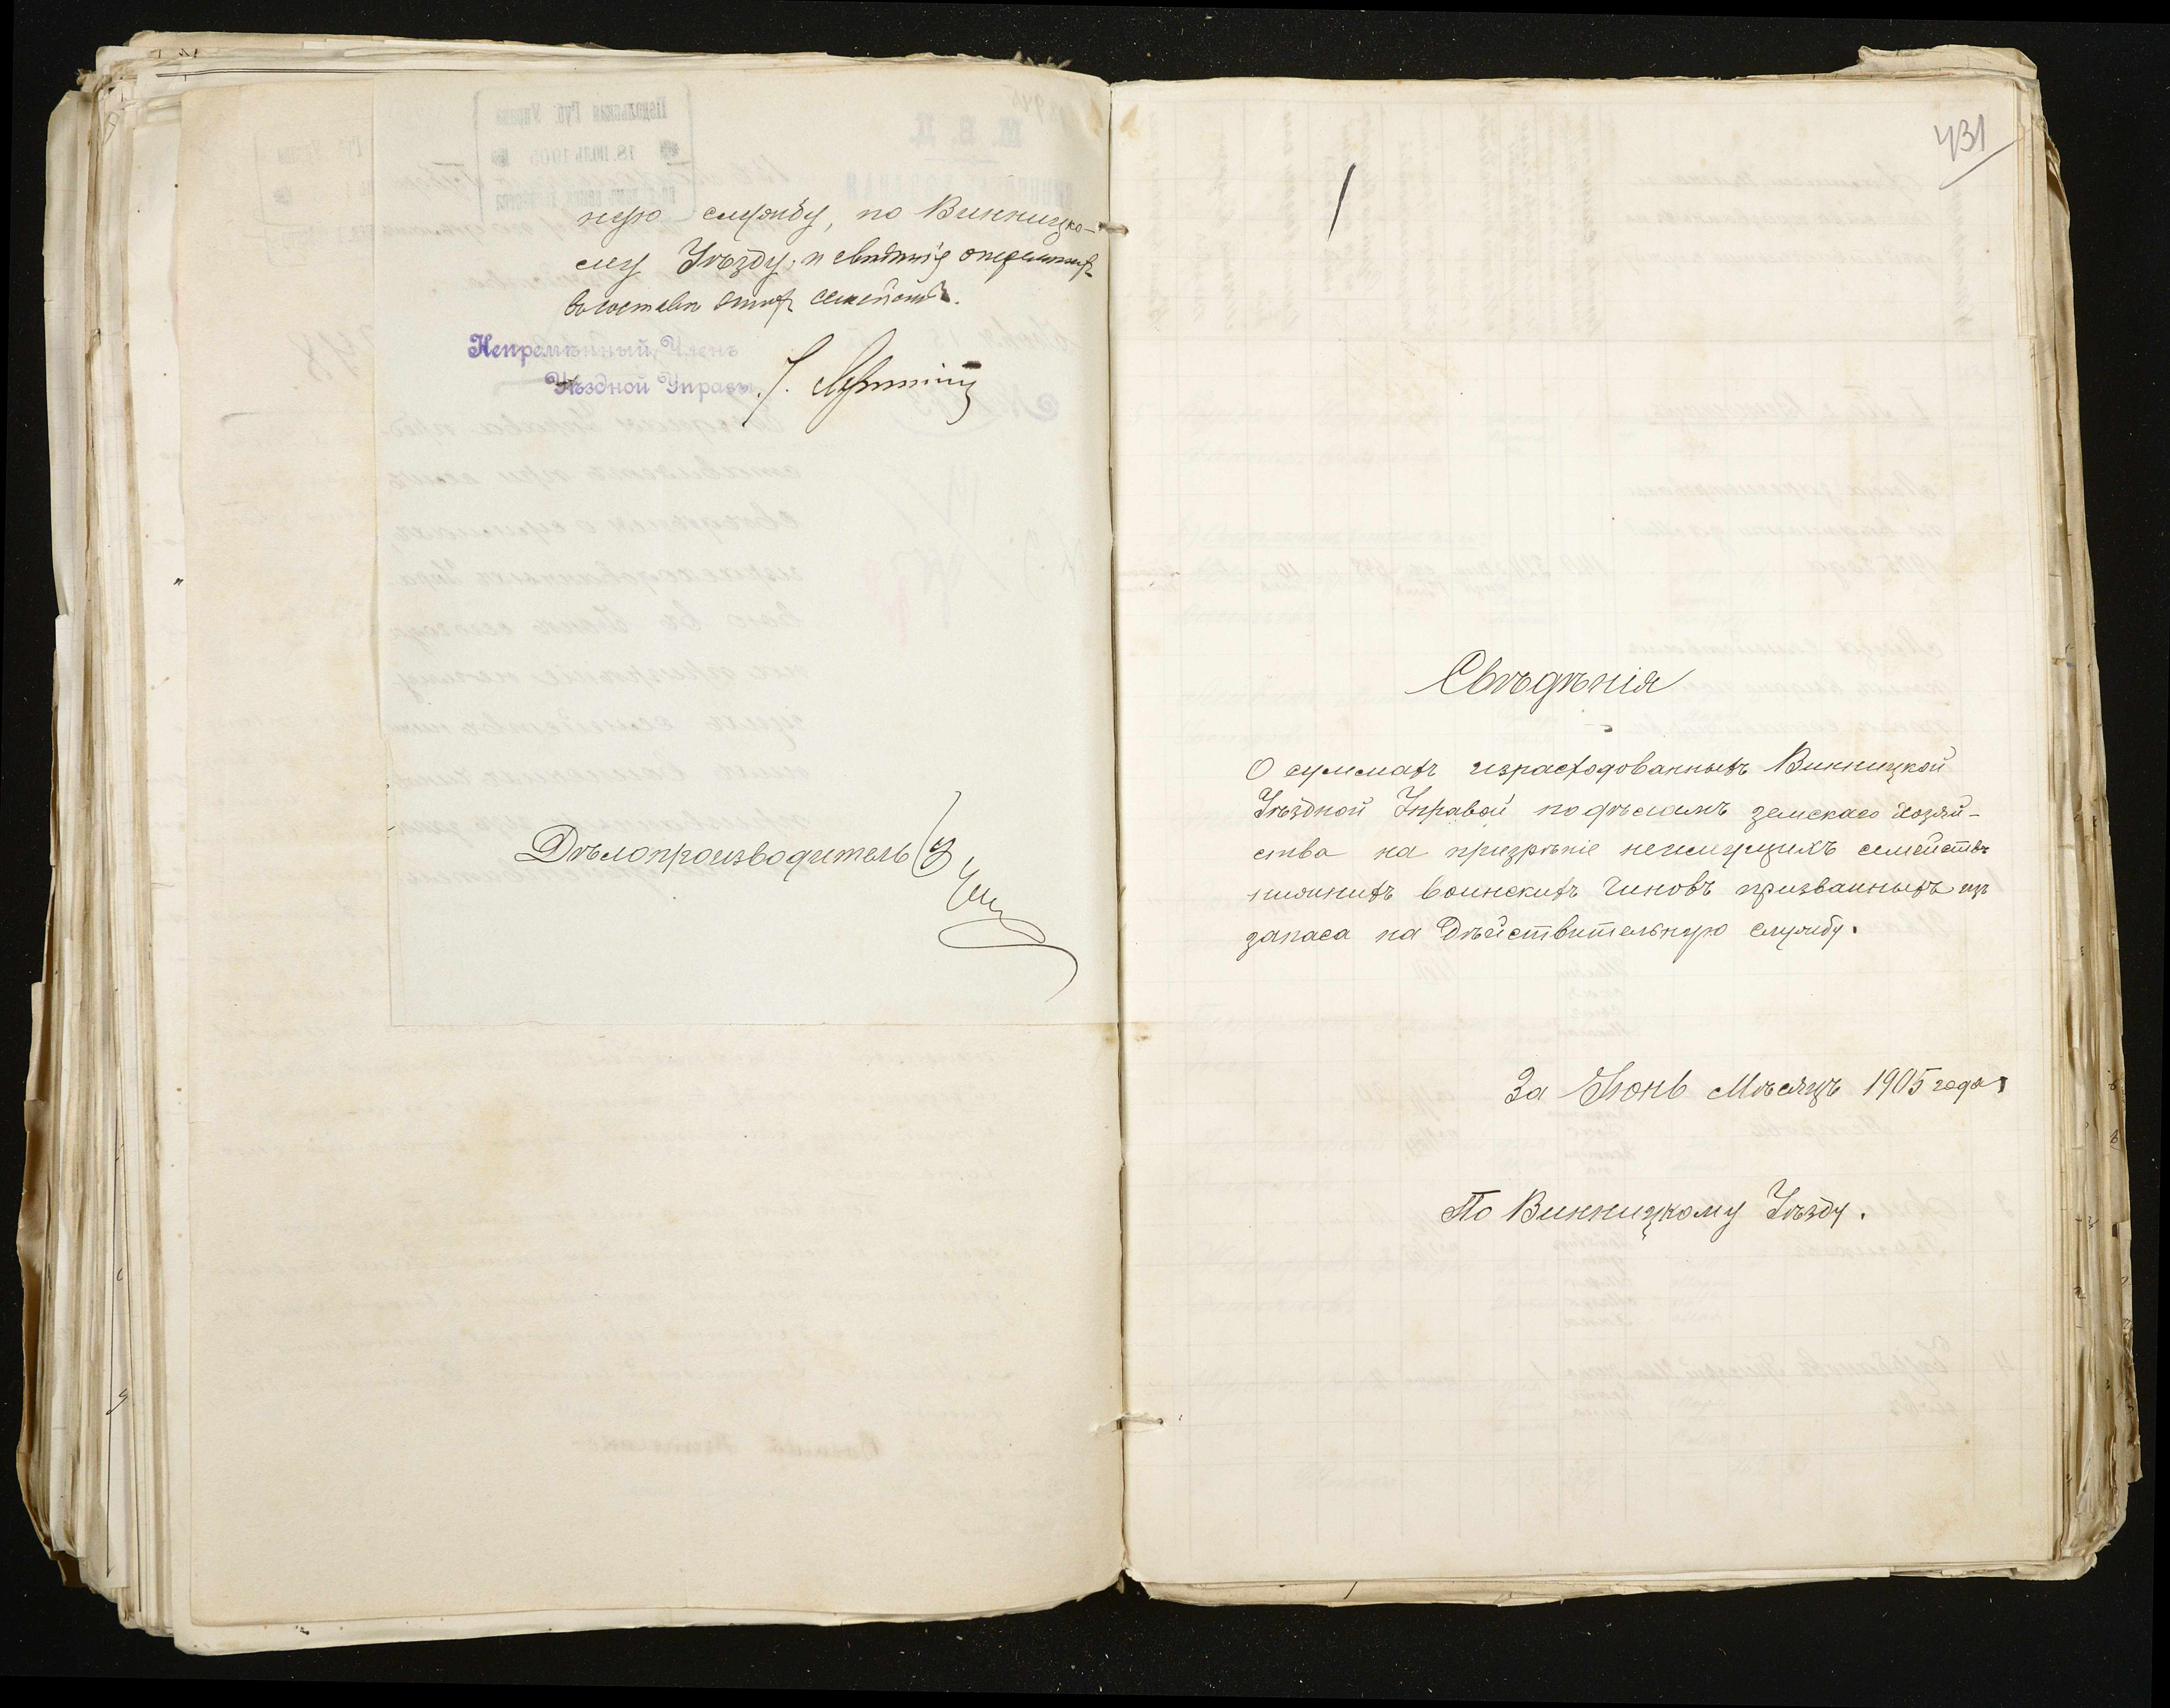 ную службу, по Винницко-
му Уѣзду, и свѣдѣнія о перемѣнах
въ составѣ этих семействъ.
Непремѣнный Членъ
Уѣздной Управы
Дѣлопроизводитель
431
Свѣдѣнія
О суммахъ израсходованныхъ Винницкой
Уѣздной Управой по дѣламъ земскаго хозяй-
ства на призрѣніе неимущихъ семействъ
нижнихъ воинскихъ чиновъ призванныхъ изъ
запаса на Дѣйствительную службу.
За Іюнь Мѣсяцъ 1905 года,
По Винницкому Уѣзду.